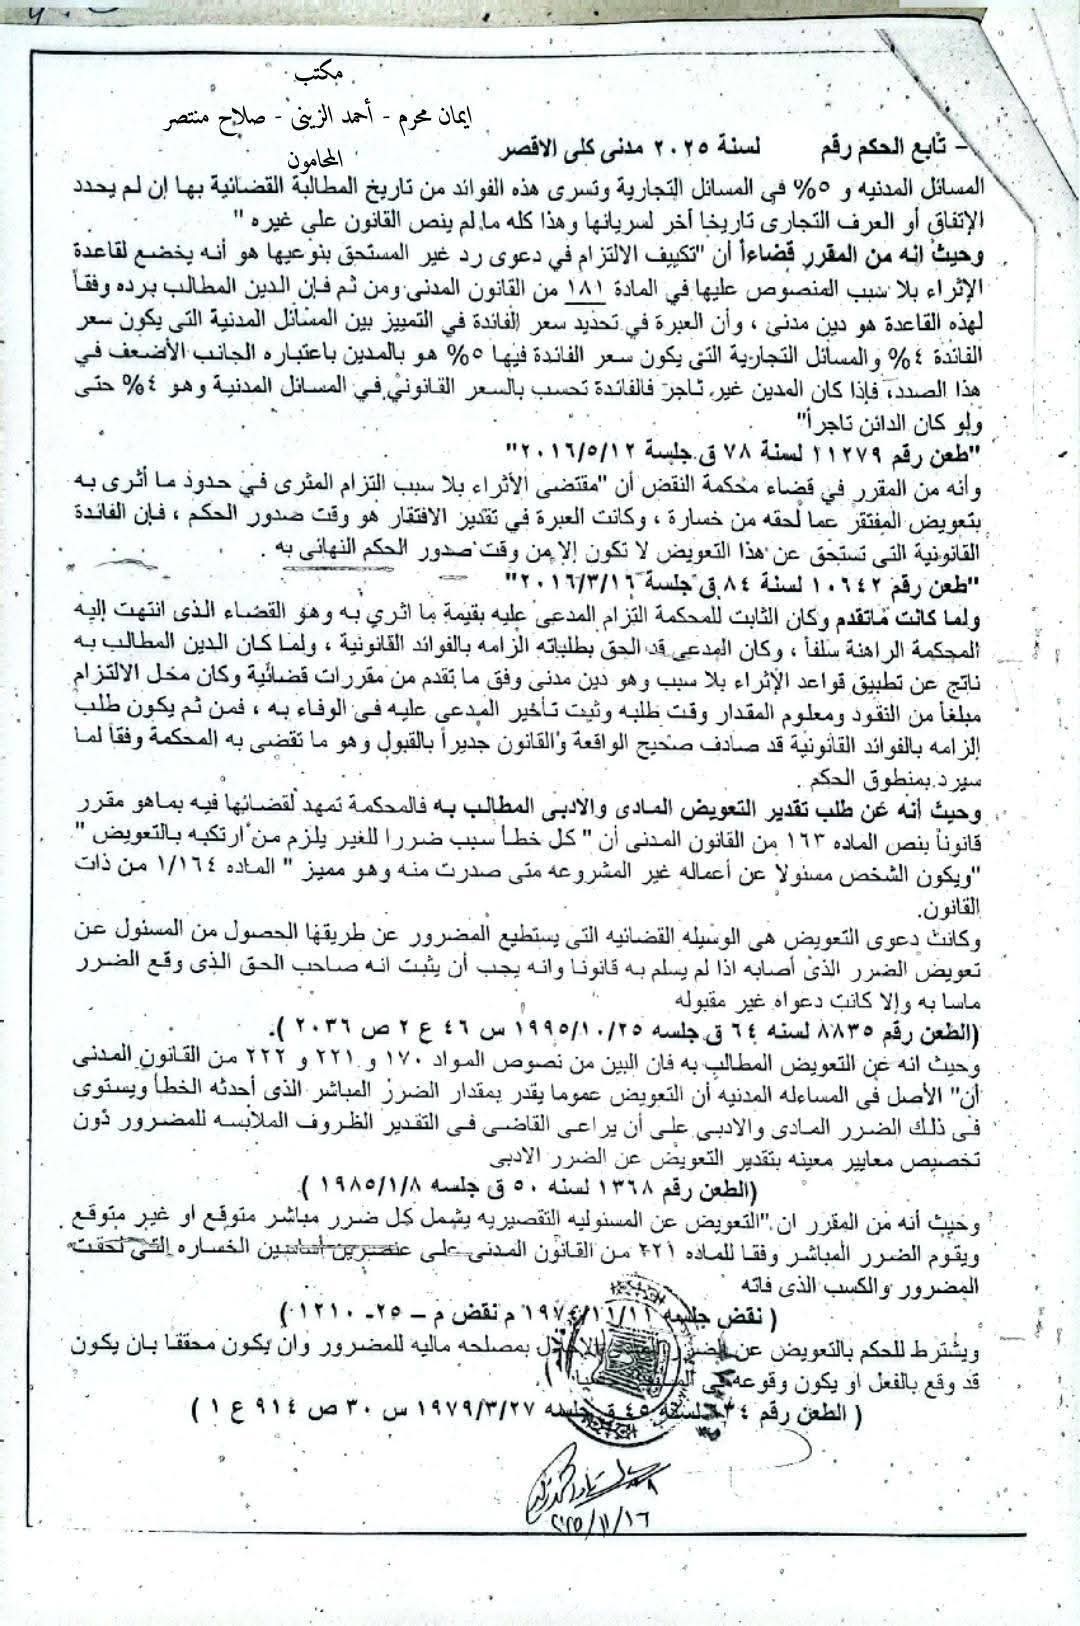 مكتب
ايمان محرم - أحمد الزينى - صلاح منتصر
المحامون
- تابع الحكم رقم لسنة ٢٠٢٥ مدنى كلى الاقصر
المسائل المدنيه و ٥% في المسائل التجارية وتسرى هذه الفوائد من تاريخ المطالبة القضائية بها إن لم يحدد
الإتفاق أو العرف التجارى تاريخا أخر لسريانها وهذا كله ما لم ينص القانون على غيره "
وحيث انه من المقرر قضاءاً أن "تكييف الالتزام في دعوى رد غير المستحق بنوعيها هو أنه يخضع لقاعدة
الإثراء بلا سبب المنصوص عليها في المادة ١٨١ من القانون المدنى ومن ثم فإن الدين المطالب برده وفقاً
لهذه القاعدة هو دين مدنى ، وأن العبرة في تحديد سعر الفائدة في التمييز بين المسائل المدنية التى يكون سعر
الفائدة ٤% والمسائل التجارية التى يكون سعر الفائدة فيها ٥% هو بالمدين باعتباره الجانب الأضعف في
هذا الصدد، فإذا كان المدين غير تاجر فالفائدة تحسب بالسعر القانوني في المسائل المدنية وهو ٤% حتى
ولو كان الدائن تاجراً"
"طعن رقم ١١٢٧٩ لسنة ٧٨ ق جلسة ٢٠١٦/٥/١٢"
وأنه من المقرر في قضاء محكمة النقض أن "مقتضى الأثراء بلا سبب التزام المثرى في حدود ما أثرى به
بتعويض المفتقر عما لحقه من خسارة ، وكانت العبرة في تقدير الافتقار هو وقت صدور الحكم ، فإن الفائدة
القانونية التى تستحق عن هذا التعويض لا تكون إلا من وقت صدور الحكم النهائى به .
"طعن رقم ١٠٦٤٢ لسنة ٨٤ ق جلسة ٢٠١٦/٣/١٦"
ولما كانت ماتقدم وكان الثابت للمحكمة التزام المدعى عليه بقيمة ما اثري به وهو القضاء الذى انتهت إليه
المحكمة الراهنة سلفاً ، وكان المدعى قد الحق بطلباته الزامه بالفوائد القانونية ، ولما كان الدين المطالب به
ناتج عن تطبيق قواعد الإثراء بلا سبب وهو دين مدنى وفق ما تقدم من مقررات قضائية وكان محل الالتزام
مبلغاً من النقود ومعلوم المقدار وقت طلبه وثبت تأخير المدعى عليه فى الوفاء به ، فمن ثم يكون طلب
إلزامه بالفوائد القانونية قد صادف صحيح الواقعة والقانون جديراً بالقبول وهو ما تقضى به المحكمة وفقاً لما
سيرد بمنطوق الحكم .
وحيث أنه عن طلب تقدير التعويض المادى والادبى المطالب به فالمحكمة تمهد لقضائها فيه بماهو مقرر
قانوناً بنص الماده ١٦٣ من القانون المدنى أن " كل خطأ سبب ضررا للغير يلزم من ارتكبه بالتعويض "
"ويكون الشخص مسئولا عن أعماله غير المشروعه متى صدرت منه وهو مميز " الماده ١/١٦٤ من ذات
القانون.
وكانت دعوى التعويض هى الوسيله القضائيه التى يستطيع المضرور عن طريقها الحصول من المسئول عن
تعويض الضرر الذى أصابه اذا لم يسلم به قانونا وانه يجب أن يثبت انه صاحب الحق الذى وقع الضرر
ماسا به وإلا كانت دعواه غير مقبوله
(الطعن رقم ٨٨٣٥ لسنه ٦٤ ق جلسه ١٩٩٥/١٠/٢٥ س ٤٦ ع ٢ ص ٢٠٣٦ ).
وحيث انه عن التعويض المطالب به فان البين من نصوص المواد ١٧٠ و ٢٢١ و ٢٢٢ من القانون المدنى
أن" الأصل فى المساءله المدنيه أن التعويض عموما يقدر بمقدار الضرر المباشر الذى أحدثه الخطأ ويستوى
فى ذلك الضرر المادى والادبى على أن يراعى القاضى فى التقدير الظروف الملابسه للمضرور دون
تخصيص معايير معينه بتقدير التعويض عن الضرر الادبى
(الطعن رقم ١٣٦٨ لسنه ٥٠ ق جلسه ١٩٨٥/١/٨ )
وحيث أنه من المقرر ان "التعويض عن المسئوليه التقصيريه يشمل كل ضرر مباشر متوقع او غير متوقع
ويقوم الضرر المباشر وفقا للماده ٢٢١ من القانون المدنى على عنصرين أساسين الخساره التى لحقت
المضرور والكسب الذى فاته
( نقض جلسه ١٩٧٤/١١/١٢ م نقض م – ٢٥- ١٢١٠ )
ويشترط للحكم بالتعويض عن الضرر المادى الاخلال بمصلحه ماليه للمضرور وان يكون محققا بان يكون
قد وقع بالفعل او يكون وقوعه فى
( الطعن رقم لسنه ٤٥ ق جلسه ١٩٧٩/٣/٢٧ س ٣٠ ص ٩١٤ ع ١ )
٢٠٢٥/١١/١٦